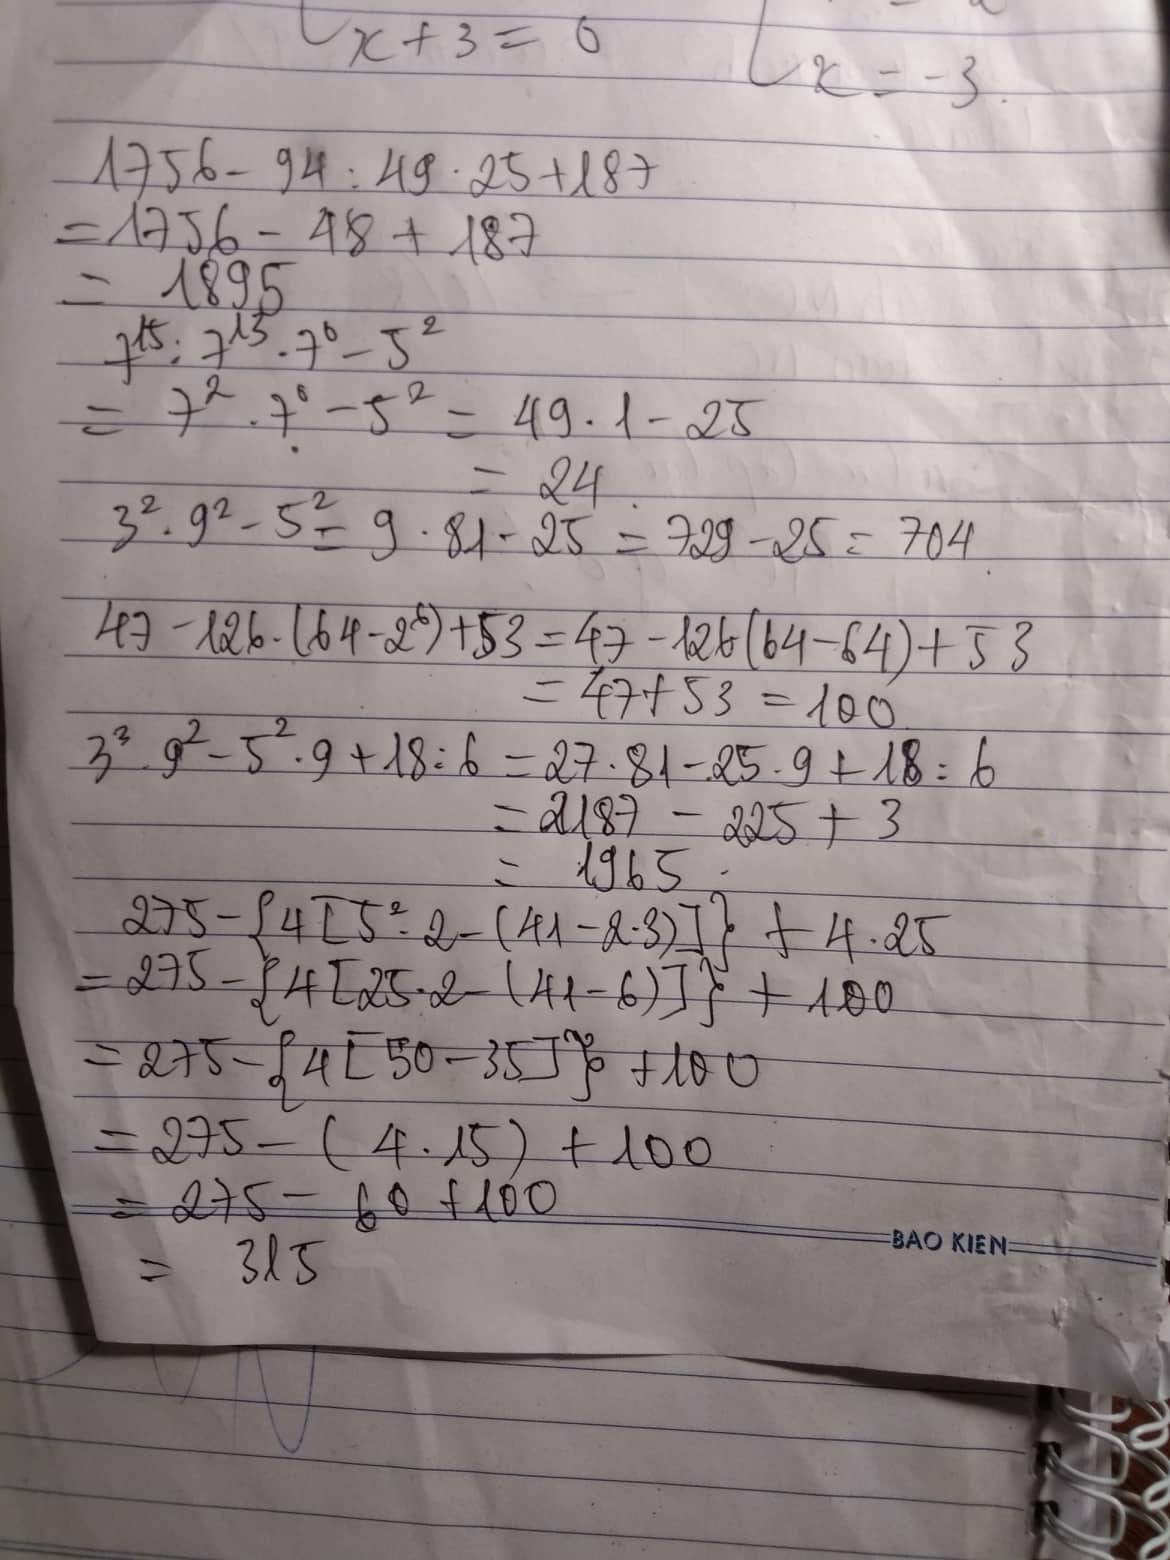 x + 3 = 0
x = -3.
1756 - 94 : 49 . 25 + 187
= 1756 - 48 + 187
= 1895
7¹⁵ : 7¹³ . 7⁰ - 5²
= 7² . 7⁰ - 5² = 49 . 1 - 25
= 24.
3² . 9² - 5² = 9 . 81 - 25 = 729 - 25 = 704.
47 - 126 . (64 - 2⁶) + 53 = 47 - 126 (64 - 64) + 53
= 47 + 53 = 100
3³ . 9² - 5² . 9 + 18 : 6 = 27 . 81 - 25 . 9 + 18 : 6
= 2187 - 225 + 3
= 1965.
275 - {4 [5² . 2 - (41 - 2 . 3)]} + 4 . 25
= 275 - {4 [25 . 2 - (41 - 6)]} + 100
= 275 - {4 [50 - 35]} + 100
= 275 - (4 . 15) + 100
= 275 - 60 + 100
BAO KIEN
= 315